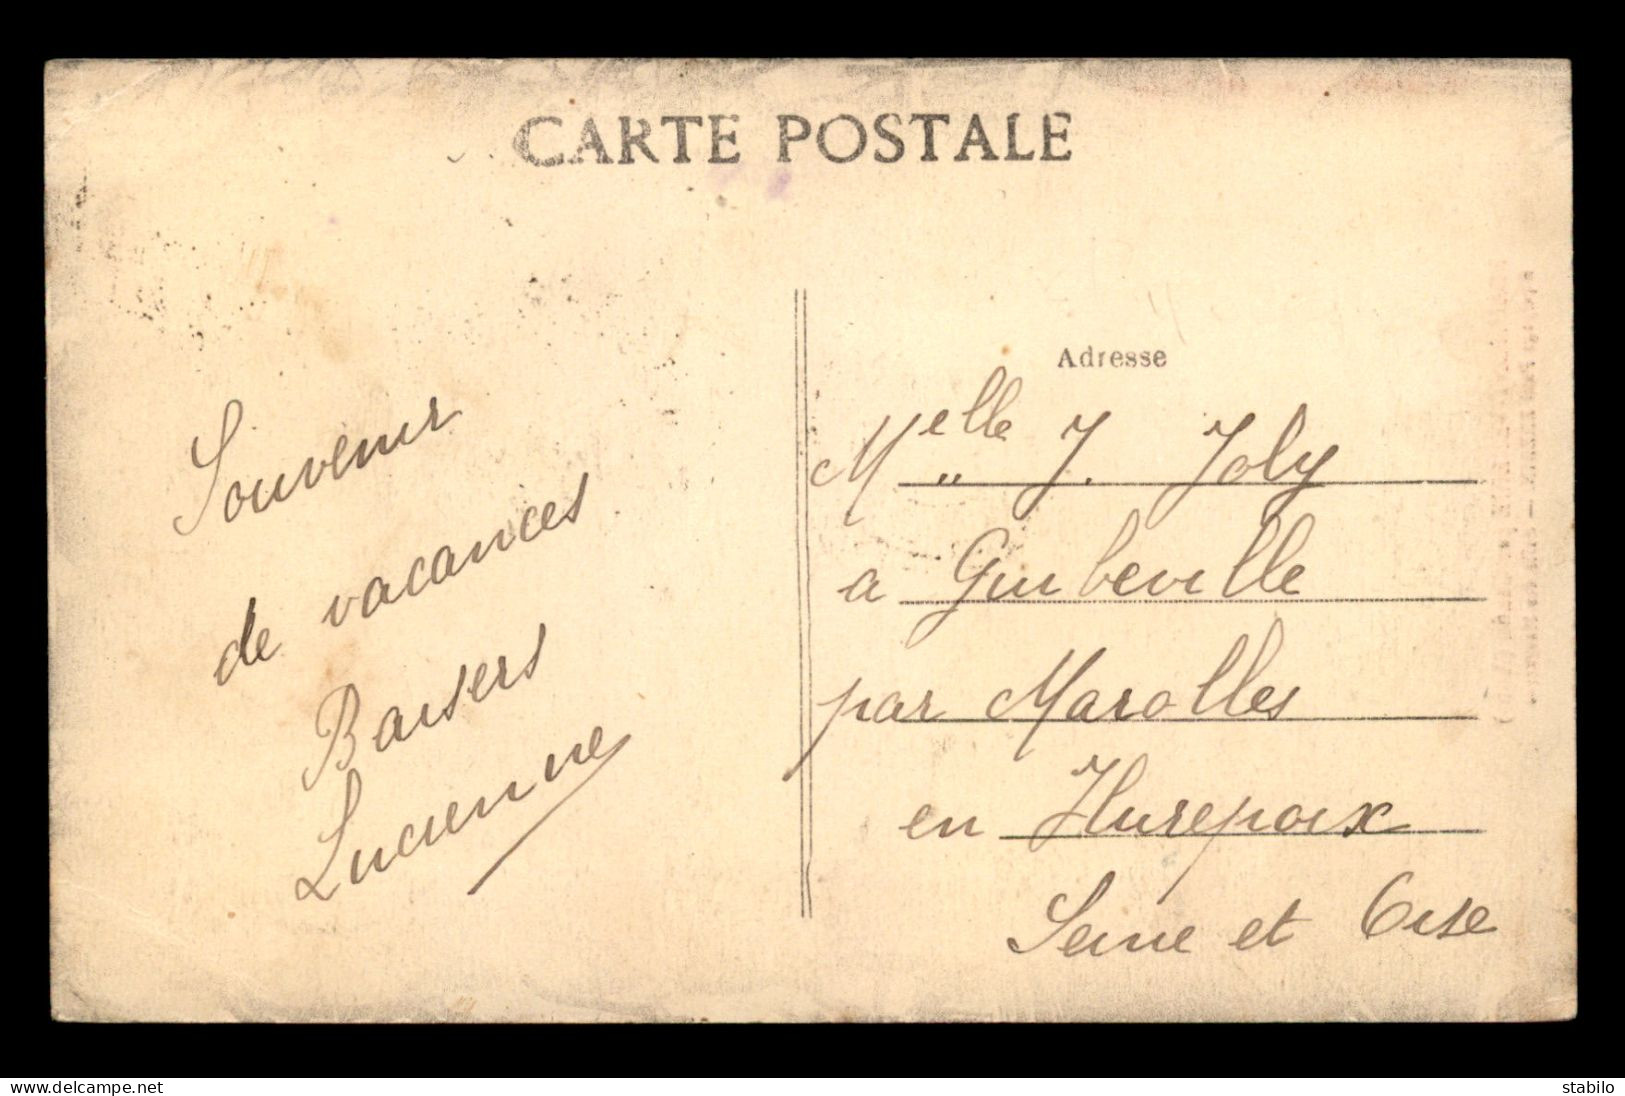 CARTE POSTALE
Souvenir
de vacances
Baisers
Lucienne
Adresse
Melle J. Joly
a Guibeville
par Marolles
en Hurepoix
Seine et Oise
www.delcampe.net
stabilo